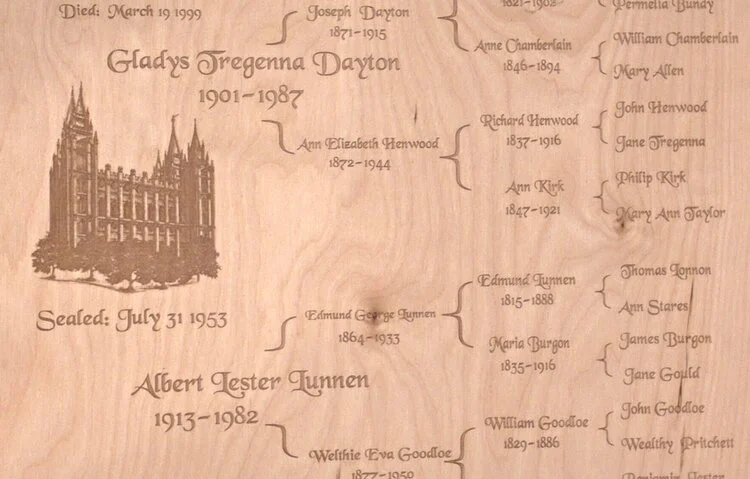 Died: March 19 1999
Joseph Dayton
1871-1915
1821-1902
Permelia Bundy
Anne Chamberlain
1846-1894
William Chamberlain
Mary Allen
Gladys Tregenna Dayton
1901-1987
Ann Elizabeth Henwood
1872-1944
Richard Henwood
1837-1916
John Henwood
Jane Tregenna
Ann Kirk
1847-1921
Philip Kirk
Mary Ann Taylor
Sealed: July 31 1953
Edmund George Lunnen
1864-1933
Edmund Lunnen
1815-1888
Thomas Lonnon
Ann Stares
Maria Burgon
1835-1916
James Burgon
Jane Gould
Albert Lester Lunnen
1913-1982
Welthie Eva Goodloe
1877-1950
William Goodloe
1829-1886
John Goodloe
Wealthy Pritchett
Benjamin Lester